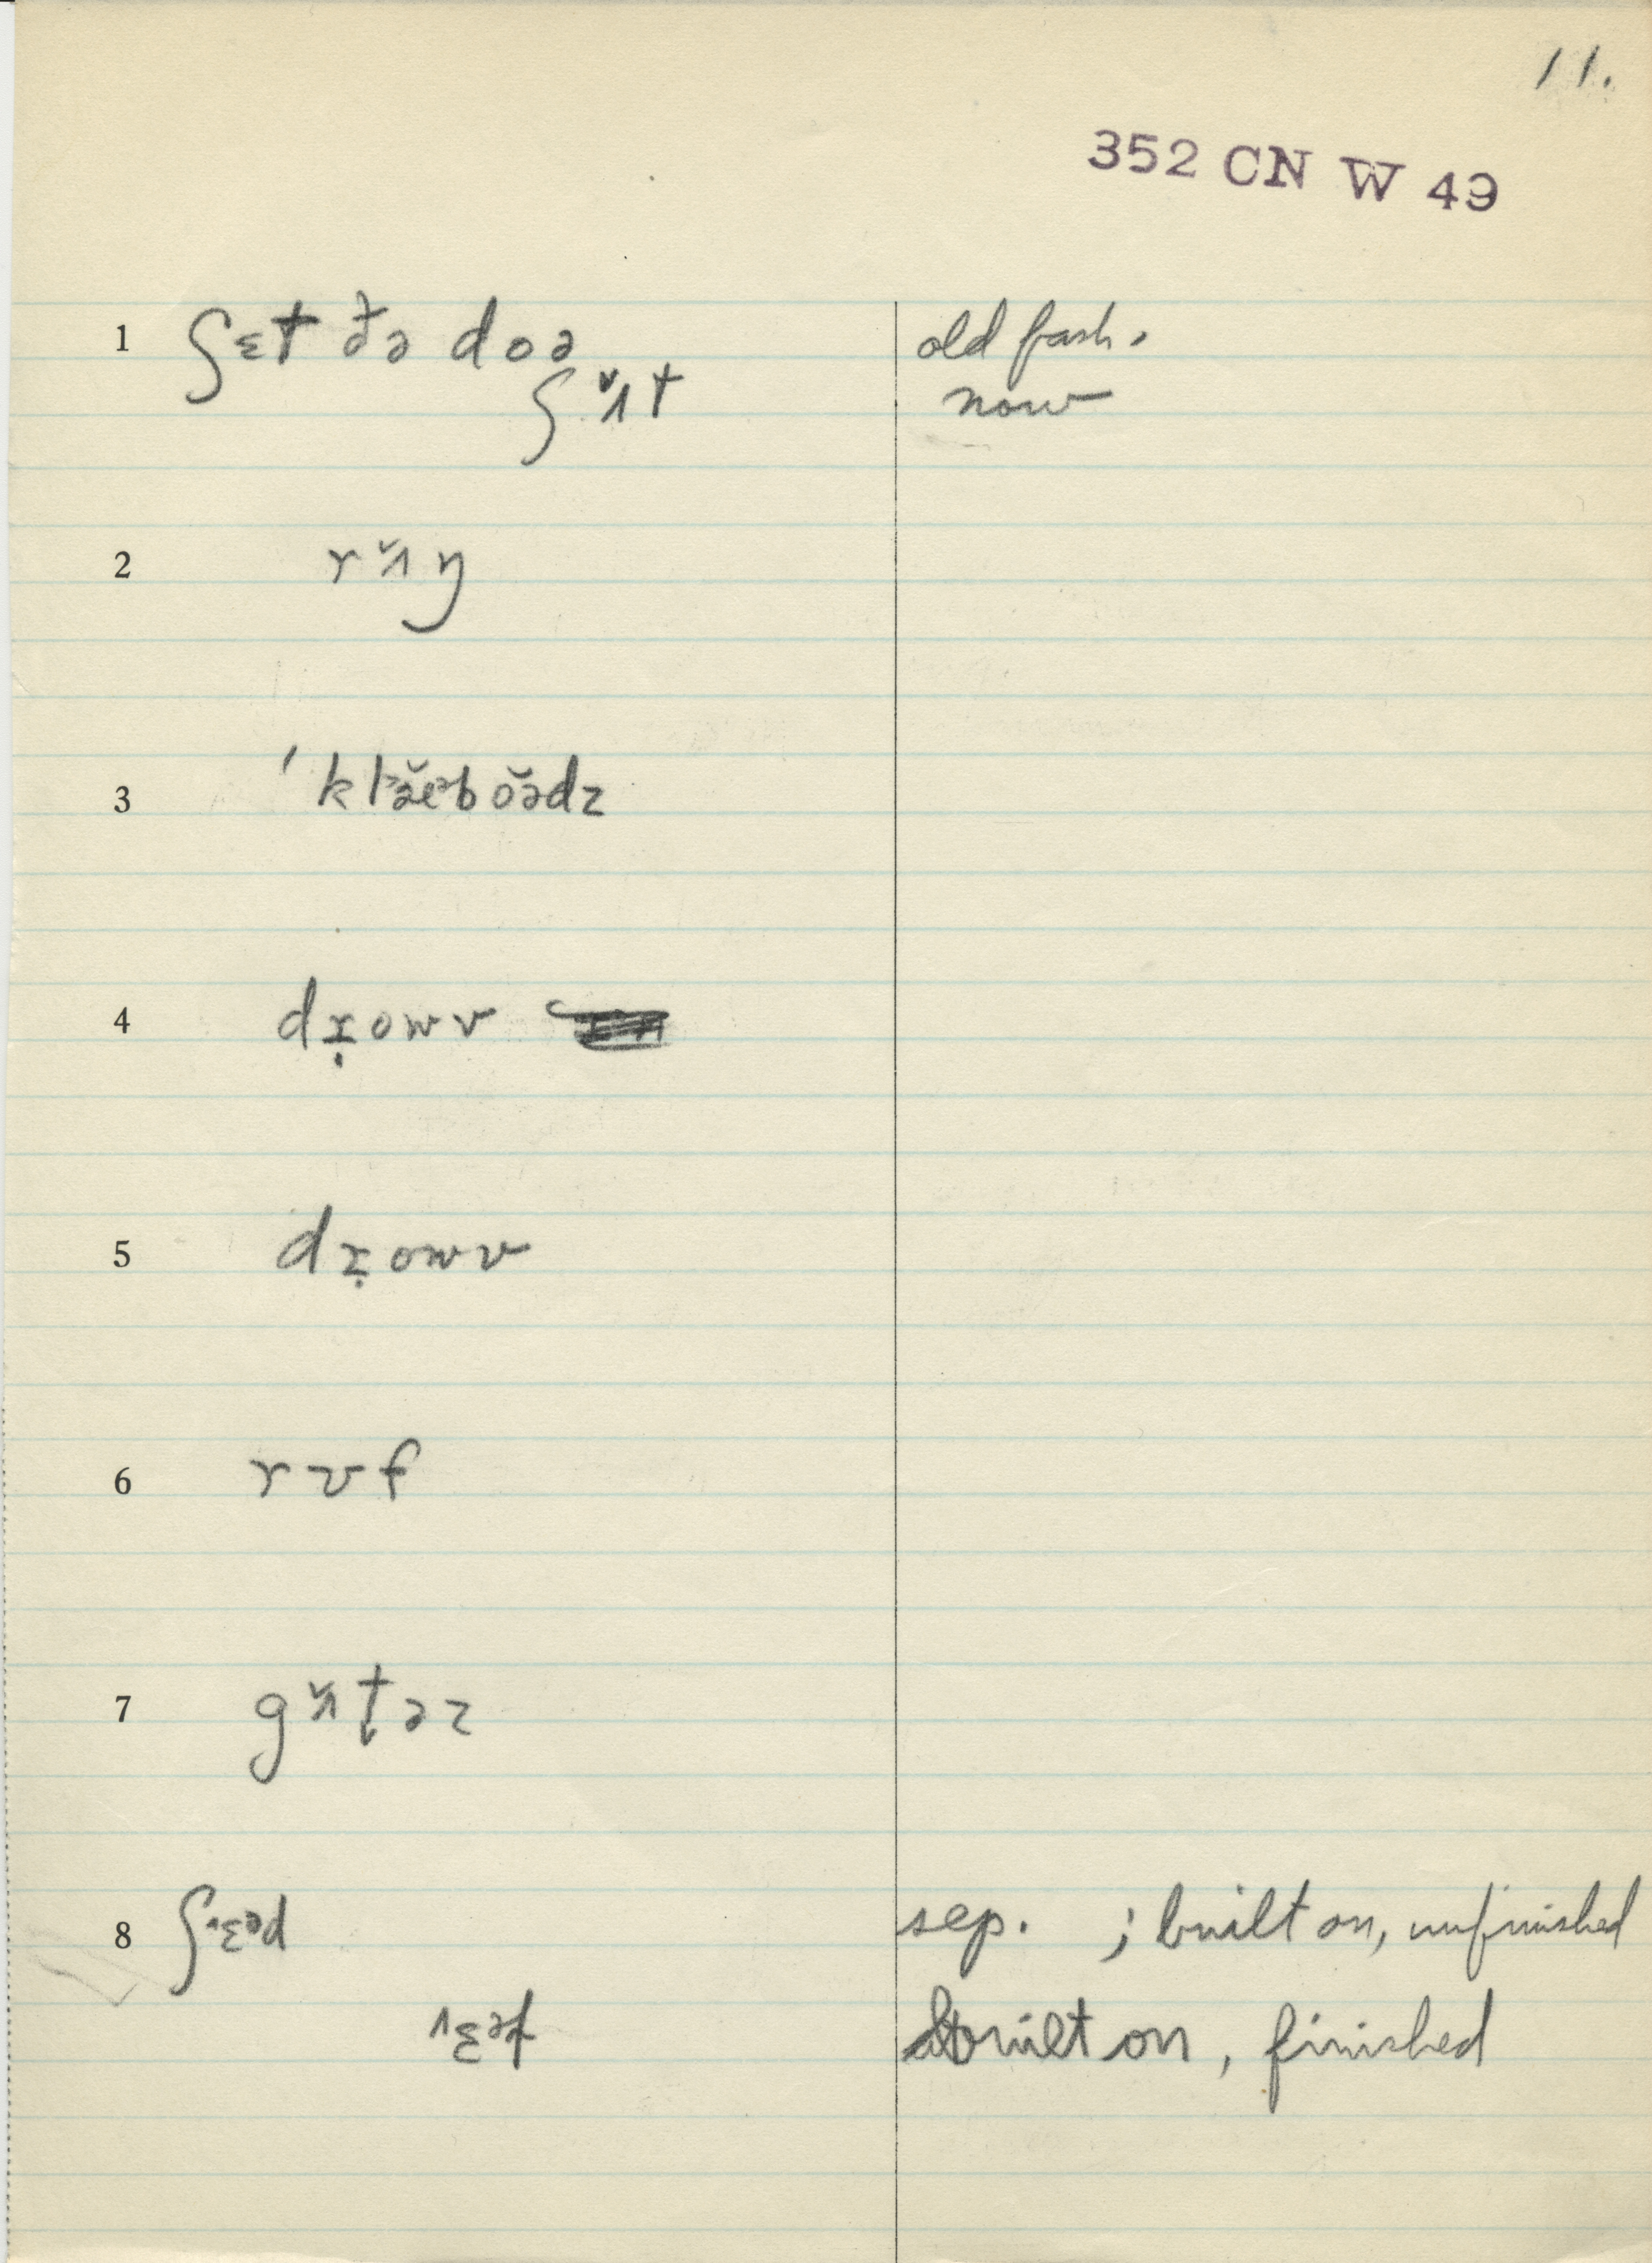 11.
352 CN W 49
1 ʃɛt ðə doə old fash.
ʃɪ̆t now
2 rɪ̆ŋ
3
4 dṛowv
5 dṛowv
6 rʊf
7 gɪ̆t̬əz
8 ʃˆɛᵊd sep. ; built on, unfinished
built on, finished